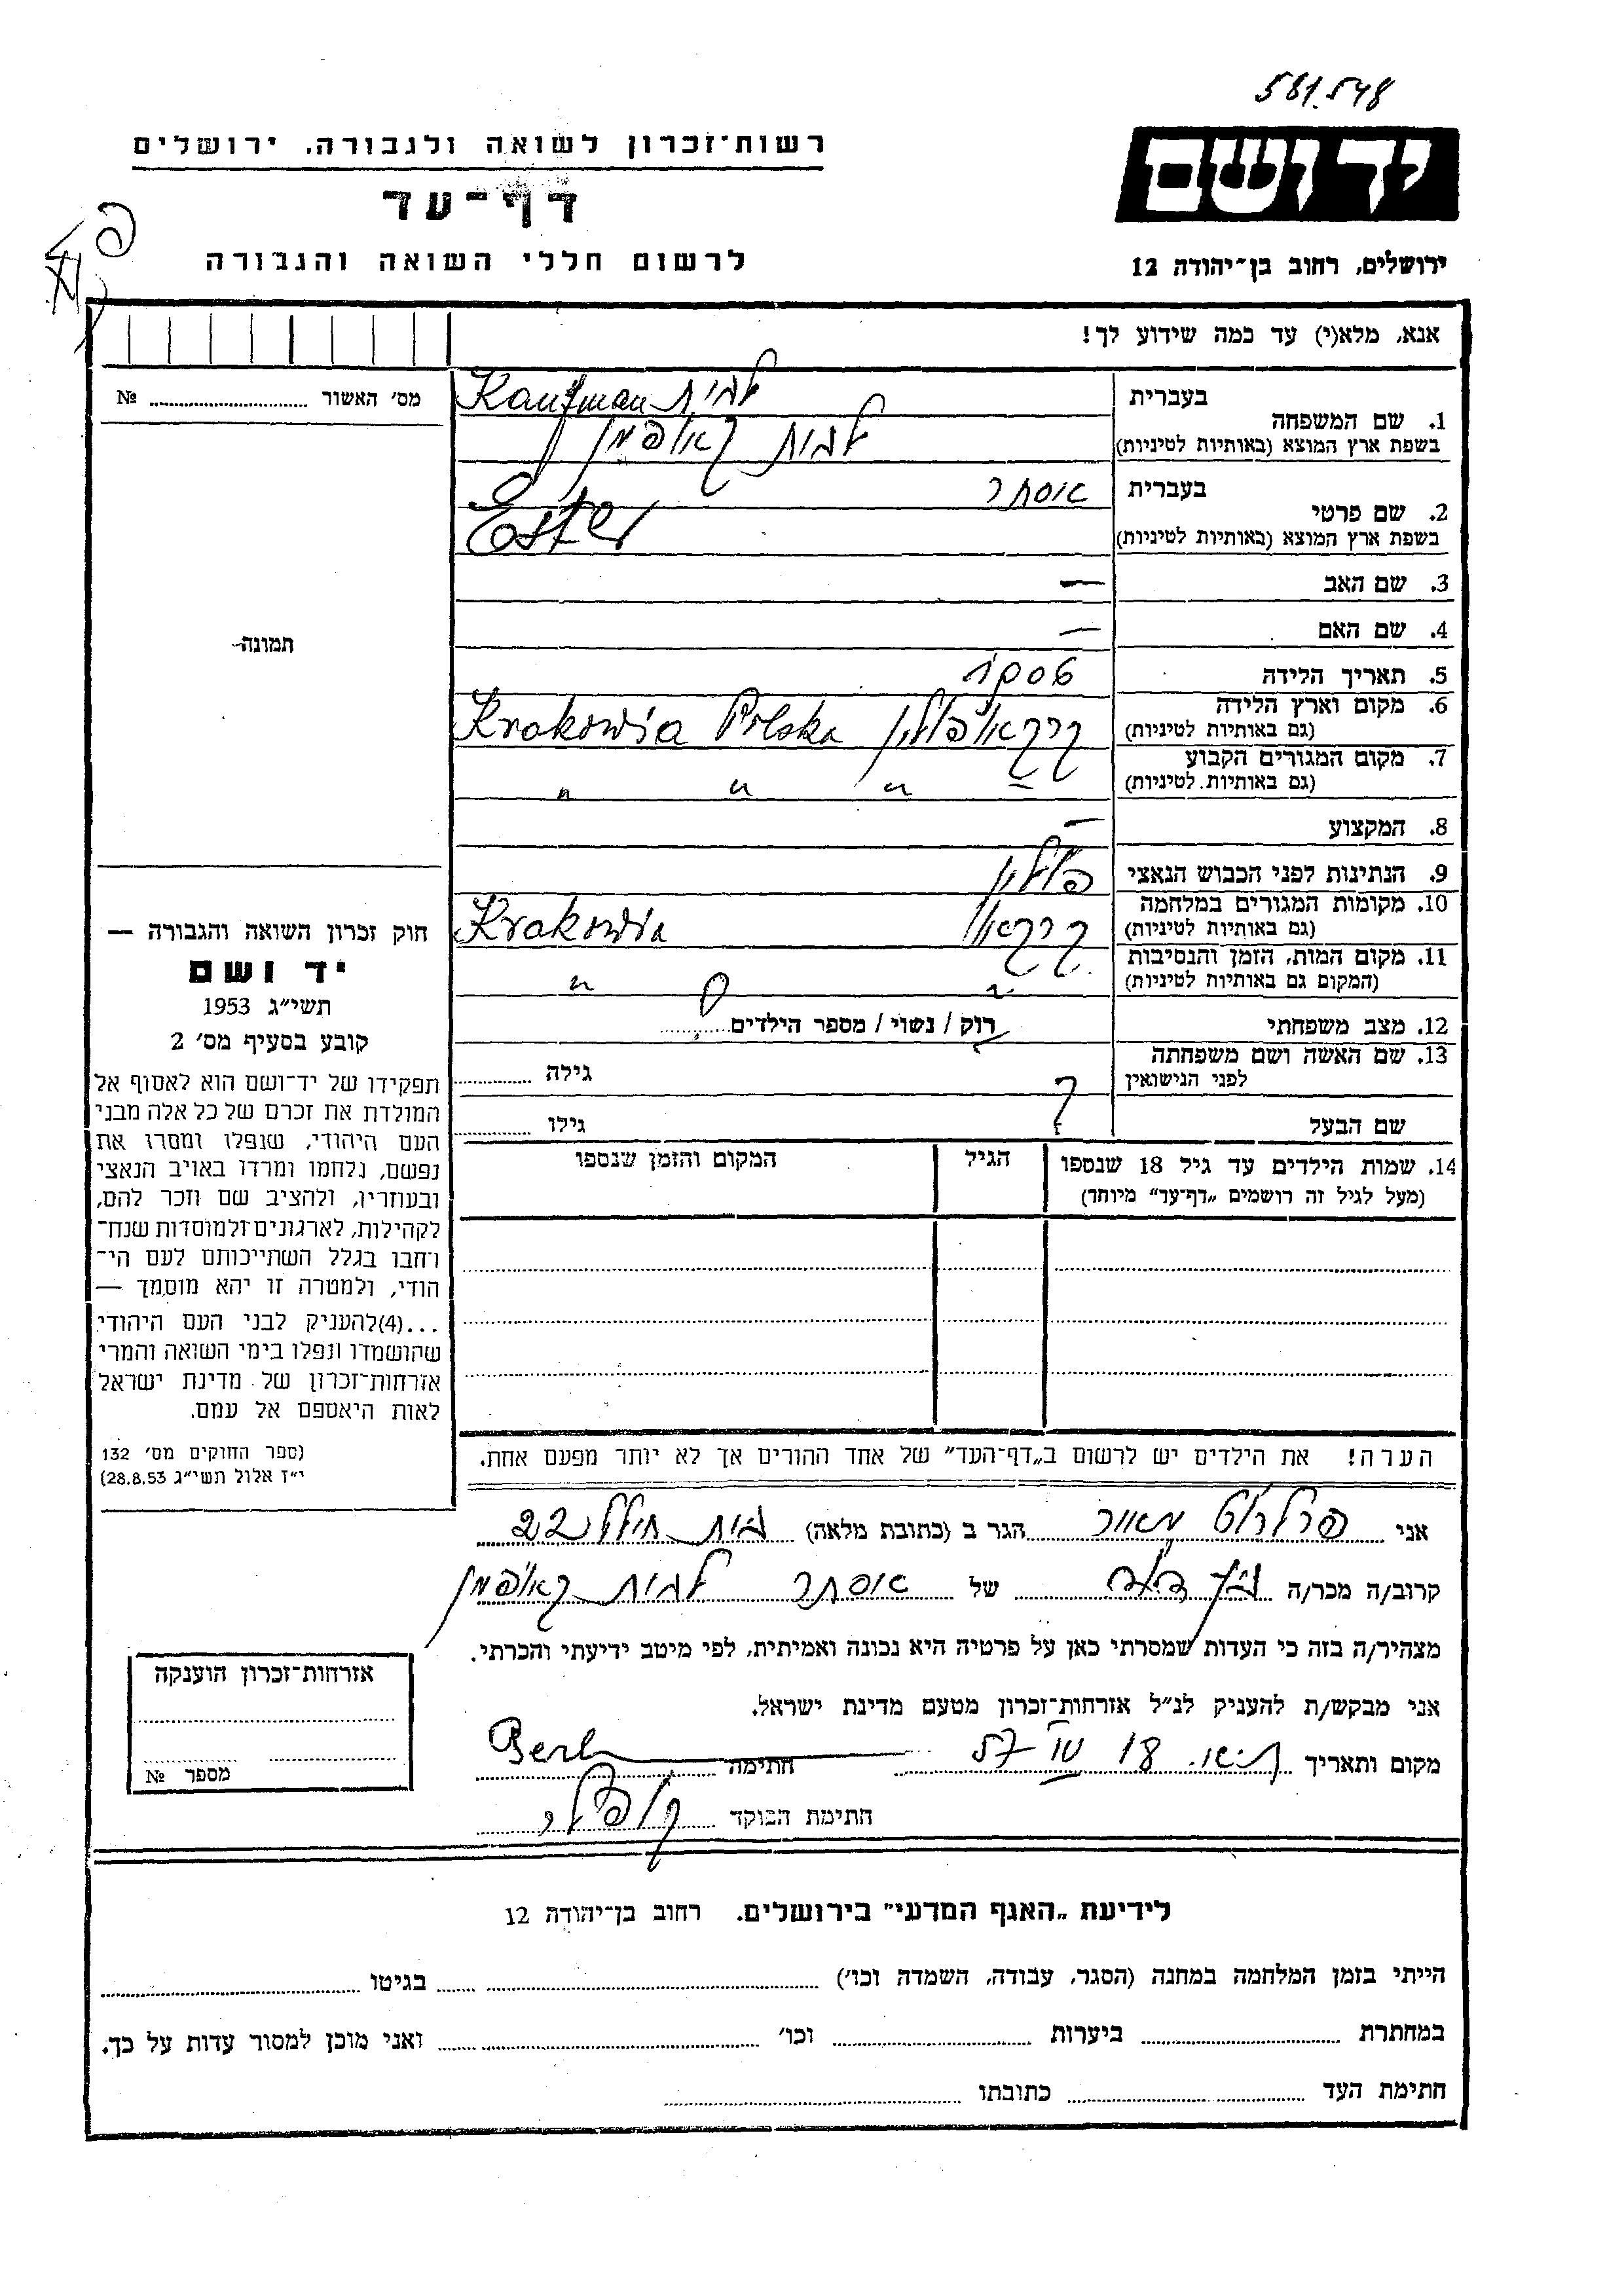 581.548
רשות־זכרון לשואה ולגבורה. ירושלים
יד ושם
דף־עד
לרשום חללי השואה והגבורה
ירושלים, רחוב בן־יהודה 12
אנא, מלא(י) עד כמה שידוע לך!
מס׳ האשור ........ №
תמונה
בעברית
1. שם המשפחה
בשפת ארץ המוצא (באותיות לטיניות)
לבית Kaufman
לבית קאופמן
בעברית אסתר
2. שם פרטי
בשפת ארץ המוצא (באותיות לטיניות) Ester
3. שם האב —
4. שם האם —
5. תאריך הלידה
6. מקום וארץ הלידה
(גם באותיות לטיניות) קרקאו פולין Krakowia Polska
7. מקום המגורים הקבוע
(גם באותיות לטיניות) " " "
8. המקצוע —
9. הנתינות לפני הכבוש הנאצי פולין
10. מקומות המגורים במלחמה
(גם באותיות לטיניות) קרקאו Krakowia
11. מקום המות, הזמן והנסיבות
(המקום גם באותיות לטיניות)
12. מצב משפחתי רוק / נשוי / מספר הילדים
13. שם האשה ושם משפחתה
לפני הנישואין גילה
שם הבעל ? גילו
14. שמות הילדים עד גיל 18 שנספו
(מעל לגיל זה רושמים „דף־עד” מיוחד)
הגיל
המקום והזמן שנספו
חוק זכרון השואה והגבורה —
יד ושם
תשי״ג 1953
קובע בסעיף מס׳ 2
תפקידו של יד־ושם הוא לאסוף אל
המולדת את זכרם של כל אלה מבני
העם היהודי, שנפלו ומסרו את
נפשם, נלחמו ומרדו באויב הנאצי
ובעוזריו, ולהציב שם וזכר להם,
לקהילות, לארגונים ולמוסדות שנח־
רחבו בגלל השתייכותם לעם הי־
הודי, ולמטרה זו יהא מוסמך —
...(4) להעניק לבני העם היהודי
שהושמדו ונפלו בימי השואה והמרי
אזרחות־זכרון של מדינת ישראל
לאות היאספם אל עמם.
(ספר החוקים מס׳ 132
י״ז אלול תשי״ג 28.8.53)
הערה! את הילדים יש לרשום ב„דף־העד” של אחד ההורים אך לא יותר מפעם אחת.
אני מאיר הגר ב (כתובת מלאה) 22
קרוב/ה מכר/ה בן דוד של אסתר לבית קאופמן
מצהיר/ה בזה כי העדות שמסרתי כאן על פרטיה היא נכונה ואמיתית, לפי מיטב ידיעתי והכרתי.
אני מבקש/ת להעניק לנ״ל אזרחות־זכרון מטעם מדינת ישראל.
מקום ותאריך 18 IV 57 חתימה
חתימת הפוקד
אזרחות־זכרון הוענקה
מספר №
לידיעת „האגף המדעי” בירושלים. רחוב בן־יהודה 12
הייתי בזמן המלחמה במחנה (הסגר, עבודה, השמדה וכו׳) ........ בגיטו ........
במחתרת ........ ביערות ........ וכו׳ ........ ואני מוכן למסור עדות על כך.
חתימת העד ........ כתובתו ........